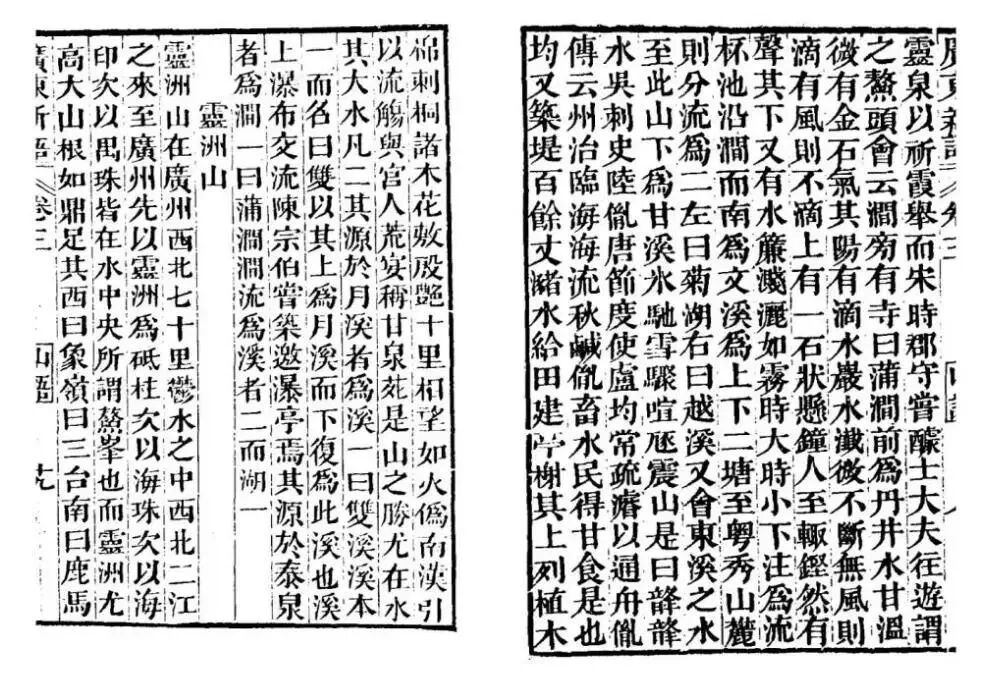 廣東新語 卷三 山語
靈泉以祈霞舉而宋時郡守嘗醵士大夫往遊謂
之鰲頭會云澗旁有寺曰蒲澗前爲丹井水甘溫
微有金石氣其陽有滴水巖水瀸微不斷無風則
滴有風則不滴上有一石狀懸鐘人至輙鏗然有
聲其下又有水簾濺灑如霧時大時小下注爲流
杯池沿澗而南爲文溪爲上下二塘至粤秀山麓
則分流爲二左曰菊湖右曰越溪又會東溪之水
至此山下爲甘溪氷馳雪驟喧豗震山是曰韸韸
水吳刺史陸胤唐節度使盧均常疏濬以通舟胤
傳云州治臨海海流秋鹹胤畜水民得甘食是也
均又築堤百餘丈瀦水給田建亭榭其上列植木
棉刺桐諸木花敷殷艷十里相望如火僞南漢引
以流觴與宮人荒宴稱甘泉苑是山之勝尤在水
其大水凡二其源於月溪者爲溪一曰雙溪溪本
一而名曰雙以其上爲月溪而下復爲此溪也溪
上瀑布交流陳宗伯嘗築邀瀑亭焉其源於泰泉
者爲澗一曰蒲澗澗流爲溪者二而湖一
靈洲山
靈洲山在廣州西北七十里鬱水之中西北二江
之來至廣州先以靈洲爲砥柱次以海珠次以海
印次以禺珠皆在水中央所謂鰲峯也而靈洲尤
高大山根如鼎足其西曰象嶺曰三台南曰鹿馬
廣東新語 卷三 山語